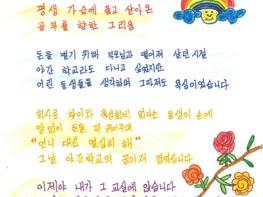 평생 가슴에 품고 살아온
공부를 향한 그리움
돈을 벌기 위해 부모님과 떨어져 살던 시절
야간 학교라도 다니고 싶었지만
어린 동생들을 생각하며 그마저도 욕심이었습니다
회사로 찾아와 육성회비 없다는 동생의 손에
말없이 돈을 꼭 쥐어주며
"언니 대신 열심히 해"
그날 야간학교의 꿈마저 접었습니다
이제야 내가 그 교실에 앉습니다